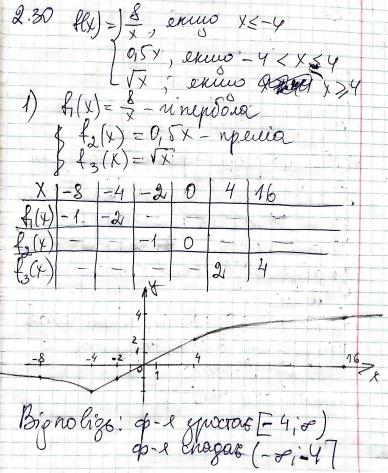 2.30 f(x) = 8/x, якщо x ≤ -4
0,5x, якщо -4 < x ≤ 4
√x, якщо x ≥ 4
1) f₁(x) = 8/x - гіпербола
f₂(x) = 0,5x - пряма
f₃(x) = √x
x | -8 | -4 | -2 | 0 | 4 | 16
f₁(x) | -1 | -2 | - | - | - | -
f₂(x) | - | - | -1 | 0 | - | -
f₃(x) | - | - | - | - | 2 | 4
y
4
2
1
-8 -4 -2 1 4 16 x
Відповідь: ф-я зростає [-4; ∞)
ф-я спадає (-∞; -4]